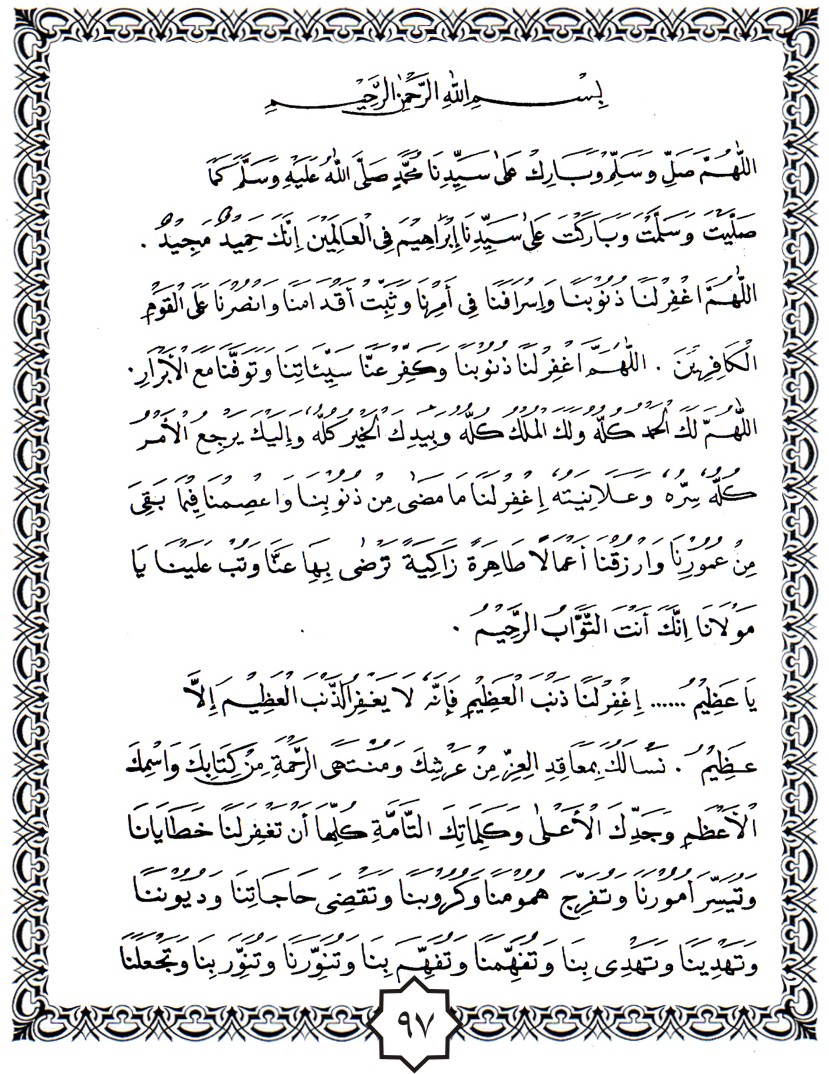 بِسْمِ اللهِ الرَّحْمٰنِ الرَّحِيْمِ
اَللّٰهُمَّ صَلِّ وَسَلِّمْ وَبَارِكْ عَلىٰ سَيِّدِنَا مُحَمَّدٍ صَلَّى اللهُ عَلَيْهِ وَسَلَّمَ كَمَا
صَلَّيْتَ وَسَلَّمْتَ وَبَارَكْتَ عَلىٰ سَيِّدِنَا إِبْرَاهِيْمَ فِى الْعَالَمِيْنَ إِنَّكَ حَمِيْدٌ مَجِيْدٌ .
اَللّٰهُمَّ اغْفِرْلَنَا ذُنُوْبَنَا وَإِسْرَافَنَا فِى أَمْرِنَا وَثَبِّتْ أَقْدَامَنَا وَانْصُرْنَا عَلَى الْقَوْمِ
الْكَافِرِيْنَ . اَللّٰهُمَّ اغْفِرْلَنَا ذُنُوْبَنَا وَكَفِّرْ عَنَّا سَيِّئَاتِنَا وَتَوَفَّنَا مَعَ الْأَبْرَارِ.
اَللّٰهُمَّ لَكَ الْحَمْدُ كُلُّهُ وَلَكَ الْمُلْكُ كُلُّهُ وَبِيَدِكَ الْخَيْرُ كُلُّهُ وَإِلَيْكَ يَرْجِعُ الْأَمْرُ
كُلُّهُ سِرُّهُ وَعَلَانِيَتُهُ إِغْفِرْ لَنَا مَا مَضَى مِنْ ذُنُوْبِنَا وَاعْصِمْنَا فِيْمَا بَقِيَ
مِنْ عُمُوْرِنَا وَارْزُقْنَا أَعْمَالًا طَاهِرَةً زَاكِيَةً تَرْضٰى بِهَا عَنَّا وَتُبْ عَلَيْنَا يَا
مَوْلَانَا إِنَّكَ أَنْتَ التَّوَّابُ الرَّحِيْمُ .
يَا عَظِيْمُ ...... إِغْفِرْلَنَا ذَنْبَ الْعَظِيْمِ فَإِنَّهُ لَا يَغْفِرُ الذَّنْبَ الْعَظِيْمَ إِلَّا
عَظِيْمُ . نَسْأَلُكَ بِمَعَاقِدِ الْعِزِّ مِنْ عَرْشِكَ وَمُنْتَهَى الرَّحْمَةِ مِنْ كِتَابِكَ وَاسْمِكَ
الْأَعْظَمِ وَجَدِّكَ الْأَعْلىٰ وَكَلِمَاتِكَ التَّامَّةِ كُلِّهَا أَنْ تَغْفِرَلَنَا خَطَايَانَا
وَتُيَسِّرَ أُمُوْرَنَا وَتُفَرِّجَ هُمُوْمَنَا وَكُرُوْبَنَا وَتَقْضِىَ حَاجَاتِنَا وَدُيُوْنَنَا
وَتَهْدِيَنَا وَتَهْدِى بِنَا وَتُفَهِّمْنَا وَتُفَهِّمَ بِنَا وَتُنَوِّرَنَا وَتُنَوِّرَ بِنَا وَتَجْعَلْنَا
٩٧